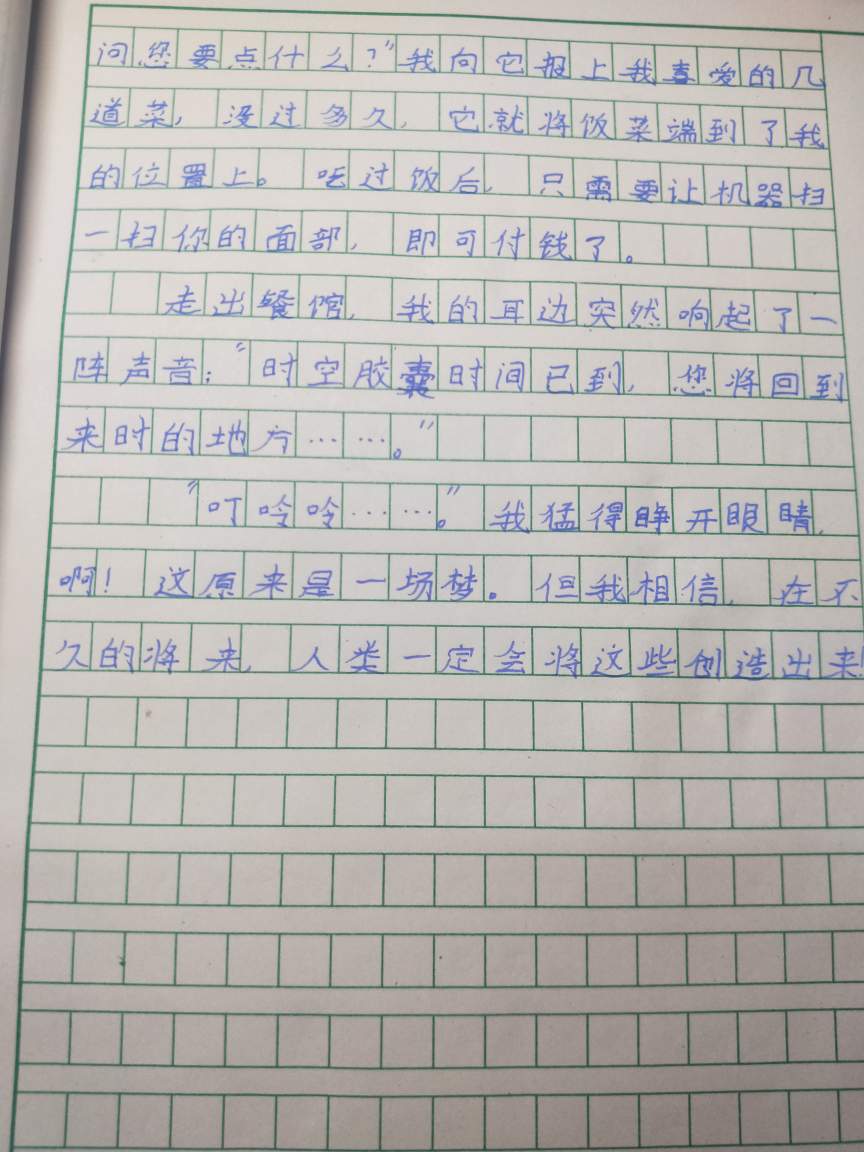 问您要点什么？”我向它报上我喜爱的几
道菜，没过多久，它就将饭菜端到了我
的位置上。吃过饭后，只需要让机器扫
一扫你的面部，即可付钱了。
走出餐馆，我的耳边突然响起了一
阵声音：“时空胶囊时间已到，您将回到
来时的地方……。”
“叮呤呤……。”我猛得睁开眼睛，
啊！这原来是一场梦。但我相信，在不
久的将来，人类一定会将这些创造出来！